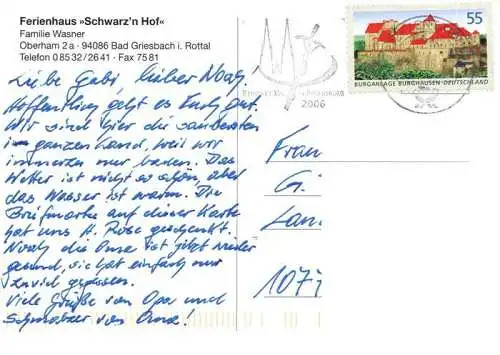 Ferienhaus »Schwarz'n Hof«
Familie Wasner
Oberham 2 a · 94086 Bad Griesbach i. Rottal
Telefon 0 85 32 / 26 41 · Fax 75 81
Liebe Gabi, lieber Noah,
hoffentlich geht es Euch gut.
Wir sind hier die saubersten
im ganzen Land, weil wir
immerzu nur baden. Das
Wetter ist nicht so schön, aber
das Wasser ist warm. Die
Briefmarke auf dieser Karte
hat uns H. Rose geschenkt.
Noah die Oma ist jetzt wieder
gesund, sie hat einfach nur
zuviel gegessen.
Viele Grüße von Opa und
Schmatzer von Oma!
2006
55
BURGANLAGE BURGHAUSEN · DEUTSCHLAND
Frau
G.
Lan.